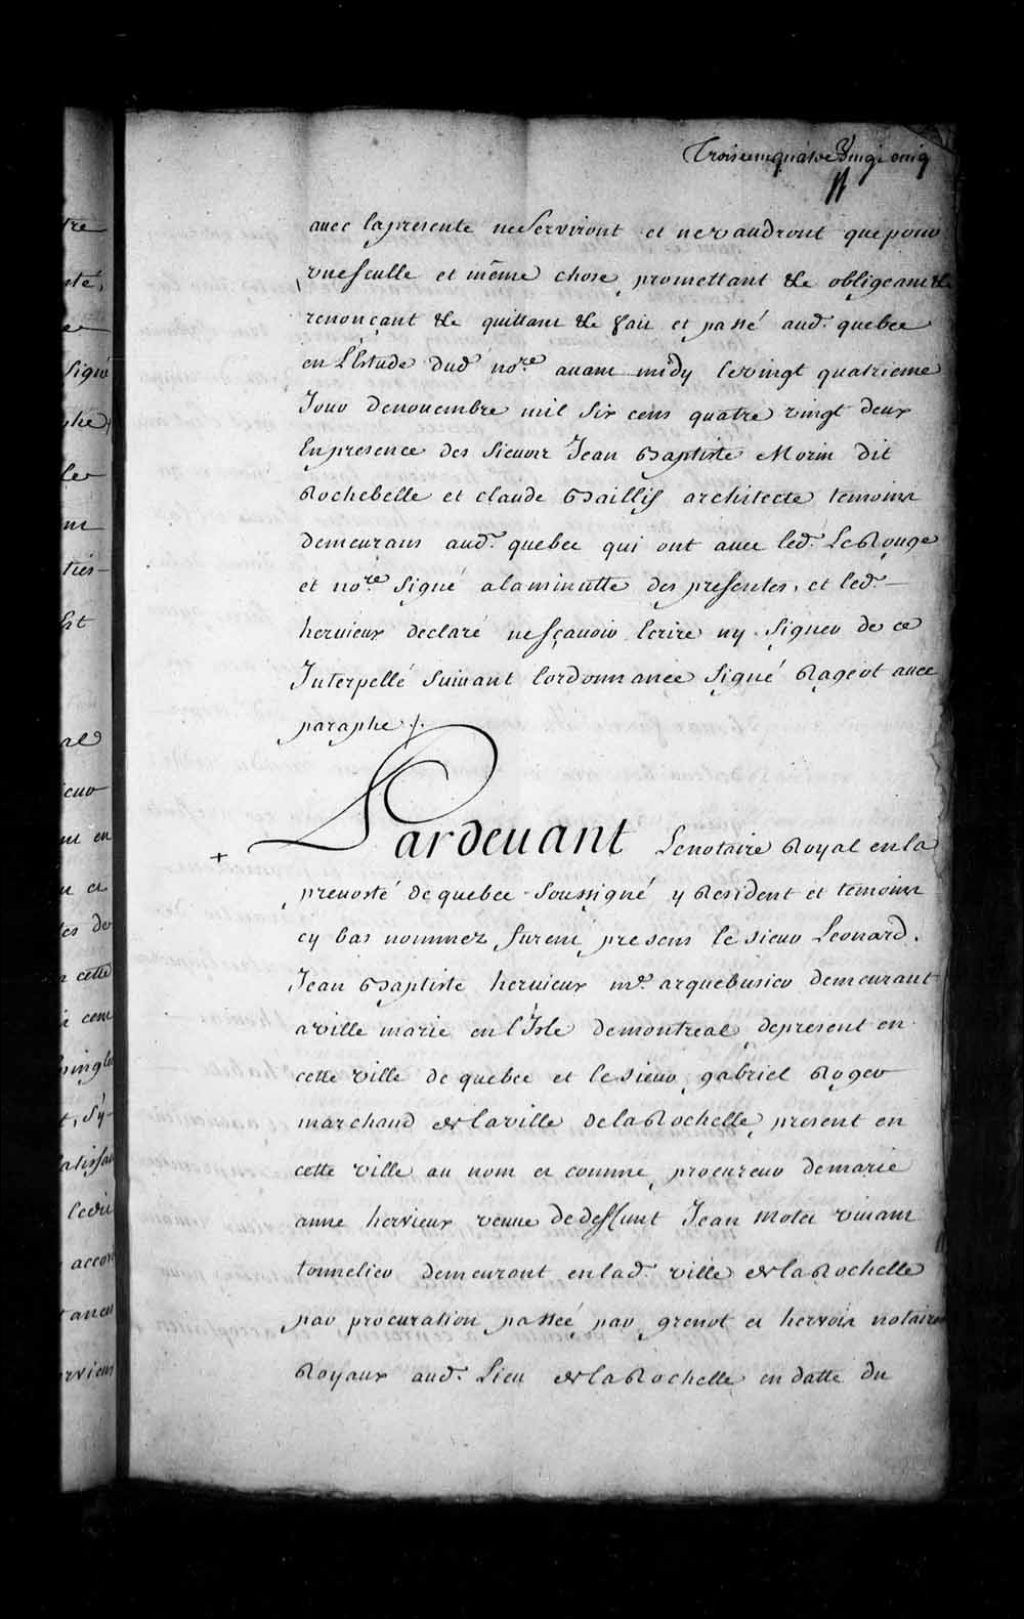 Trois cent quatre Vingt onze
avec la presente ne Serviront et ne vaudront que pour
vne Seulle et même chose, promettant &c obligeant &c
renonçant &c quittant &c fait et passé aud. quebec
en L'Estude dud. no.re auant midy le vingt quatrieme
Jour de nouembre mil Six cens quatre vingt deux
En presence des Sieurs Jean Baptiste Morin dit
Rochebelle et claude Baillif architecte temoins
demeurans aud. quebec qui ont auec led. Le Rouge
et no.re Signé a la minutte des presentes, et led. -
heruieux declaré ne Sçauoir Ecrire ny Signer de ce
Interpellé Suiuant l'ordonnance Signé Rageot auec
paraphe ./.
+ Pardeuant Le notaire Royal en la
preuosté de quebec Soussigné y Resident et temoins
cy bas nommez, furent presens le sieur Leonard.
Jean Baptiste heruieux m.e arquebusier demeurant
a ville marie en l'Isle de montreal, de present en
cette ville de quebec et le sieur gabriel Roger
marchand de la ville de la Rochelle, present en
cette ville au nom et comme, procureur de marie
anne hervieux veuue de deffunt Jean Motet viuant
tonnelier demeurant en lad. ville de la Rochelle
par procuration passée par grenot et hervoir notaires
Royaux aud. Lieu de la Rochelle en datte du
tre
nte,
Signé
phe
Le
ties-
Est
cur
nt en
n et
tes de
cette
cent
vingts
t, Sy-
satisfai
ledit
accor
tances
ervieux